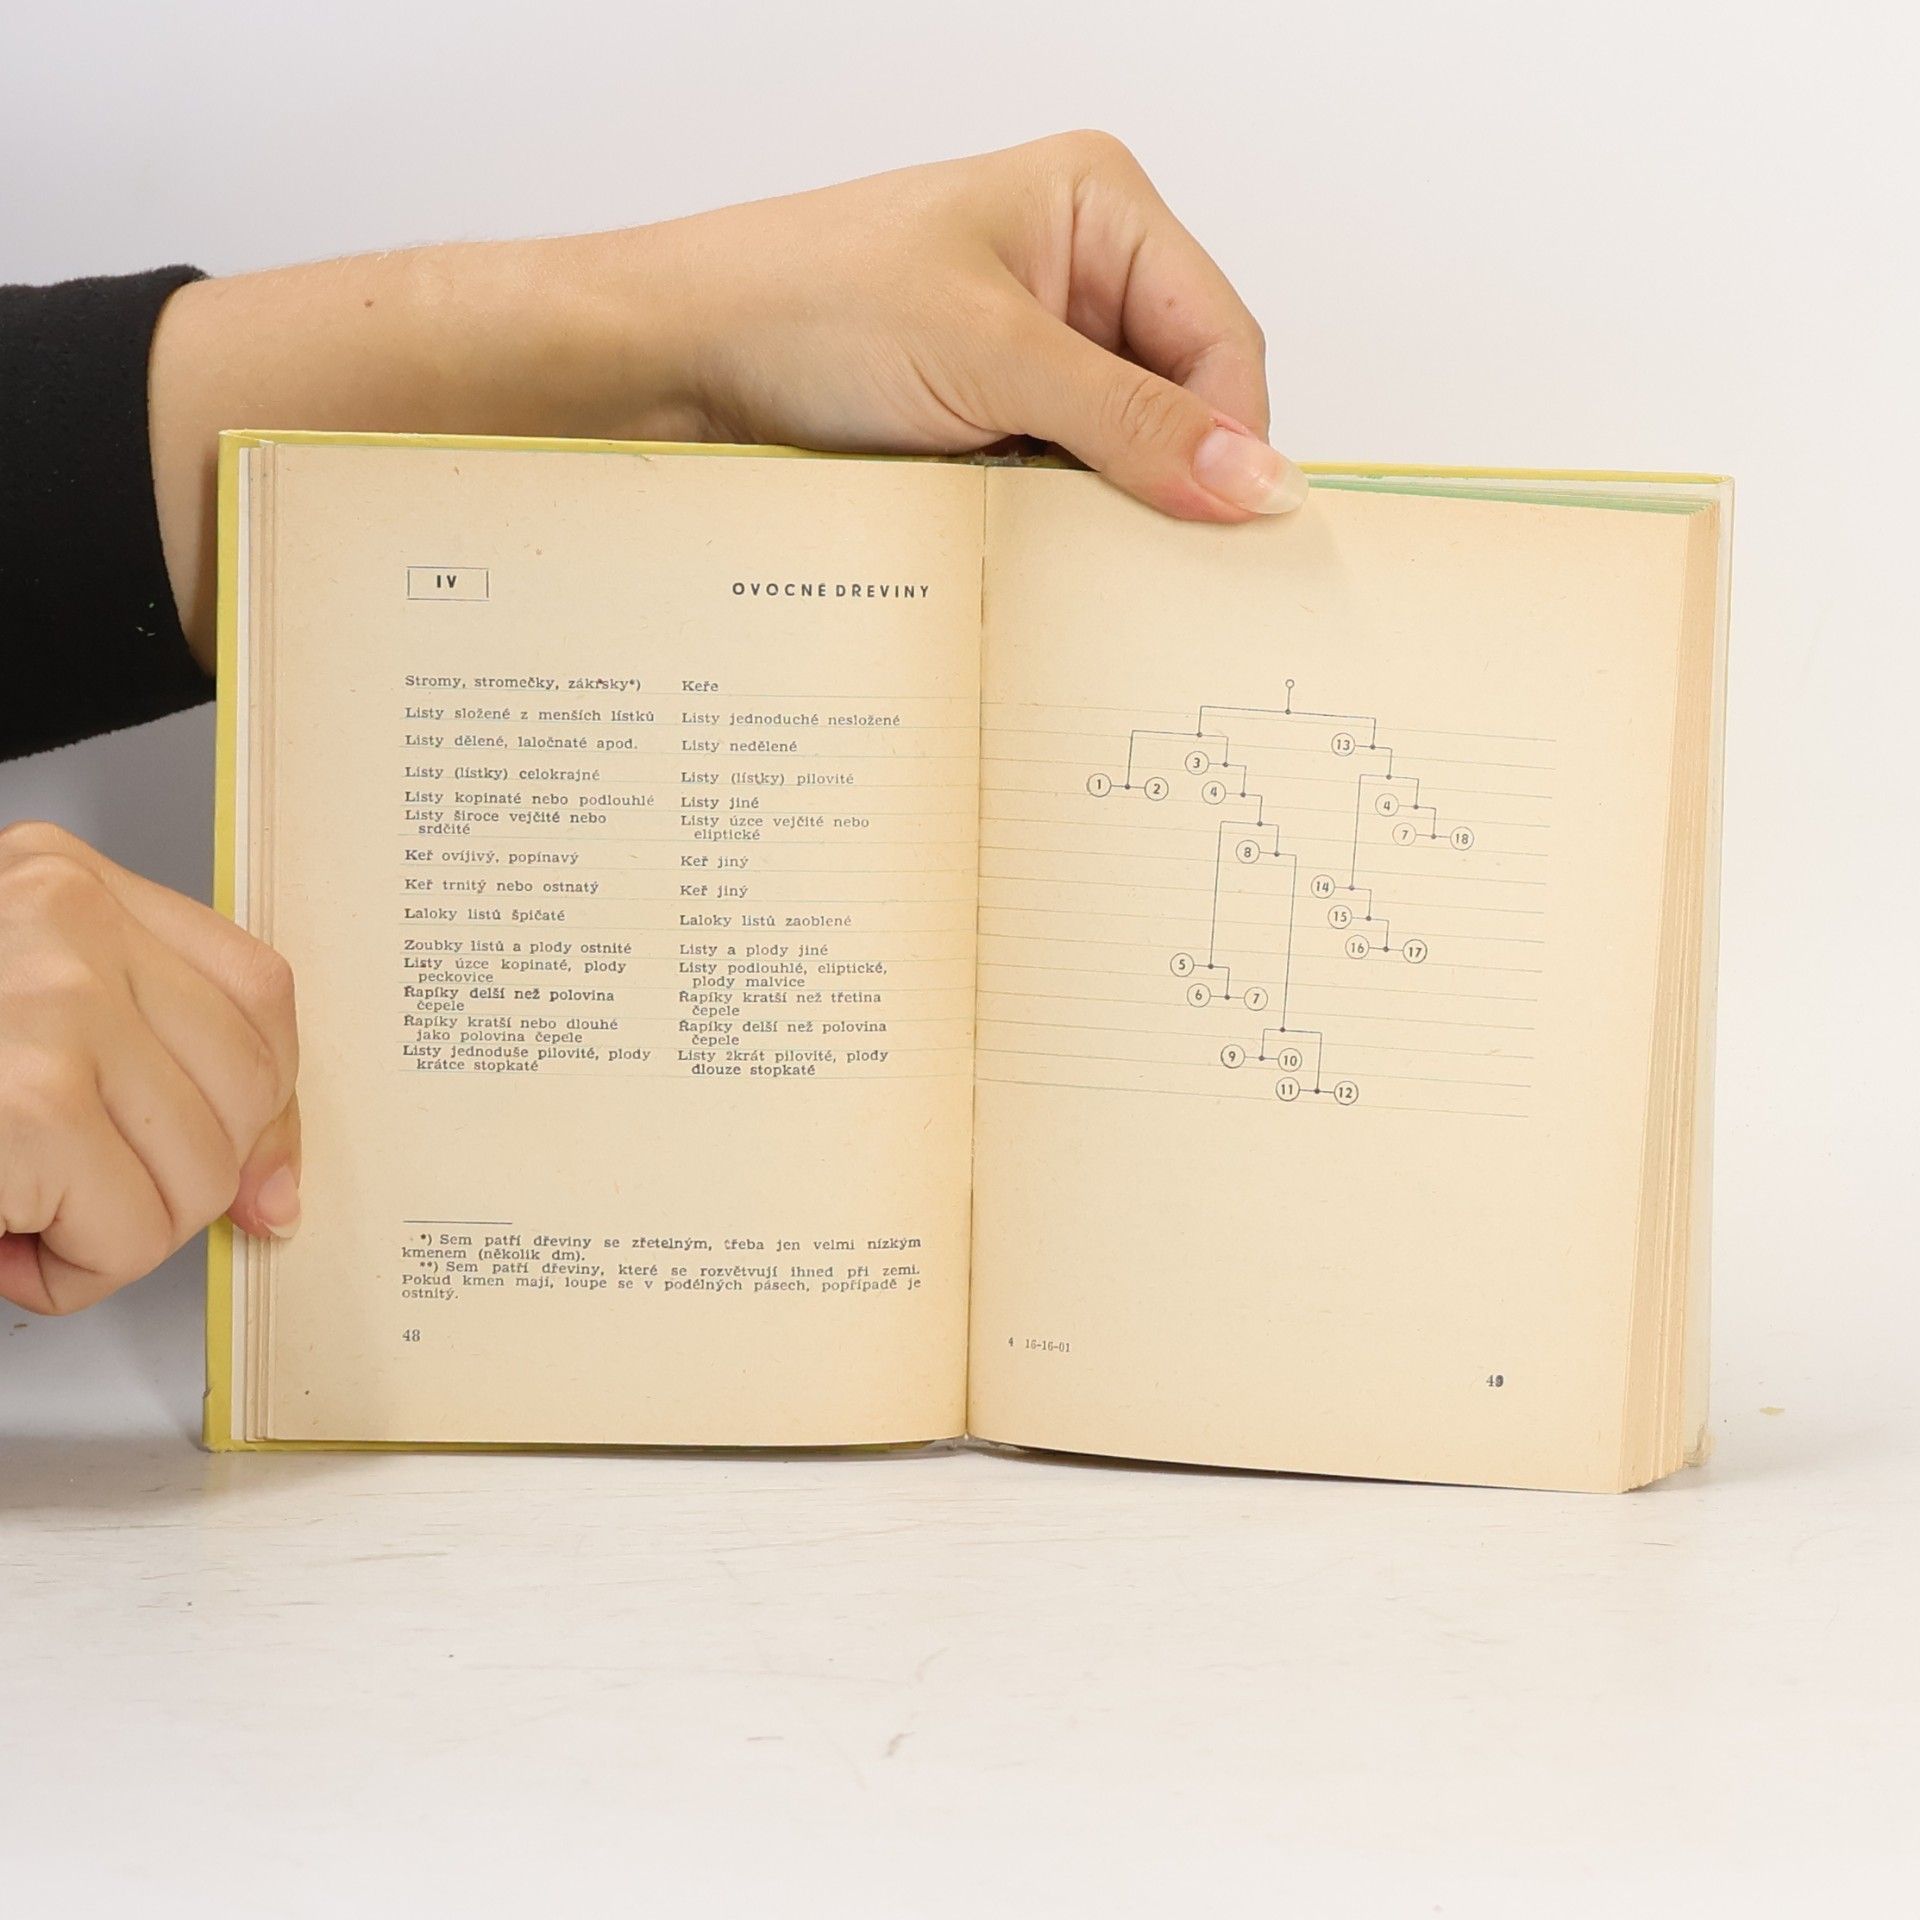 IV
OVOCNÉ DŘEVINY
Stromy, stromečky, zákrsky*) Keře
Listy složené z menších lístků Listy jednoduché nesložené
Listy dělené, laločnaté apod. Listy nedělené
Listy (lístky) celokrajné Listy (lístky) pilovité
Listy kopinaté nebo podlouhlé Listy jiné
Listy široce vejčité nebo Listy úzce vejčité nebo
srdčité eliptické
Keř ovíjivý, popínavý Keř jiný
Keř trnitý nebo ostnatý Keř jiný
Laloky listů špičaté Laloky listů zaoblené
Zoubky listů a plody ostnité Listy a plody jiné
Listy úzce kopinaté, plody Listy podlouhlé, eliptické,
peckovice plody malvice
Řapíky delší než polovina Řapíky kratší než třetina
čepele čepele
Řapíky kratší nebo dlouhé Řapíky delší než polovina
jako polovina čepele čepele
Listy jednoduše pilovité, plody Listy 2krát pilovité, plody
krátce stopkaté dlouze stopkaté
*) Sem patří dřeviny se zřetelným, třeba jen velmi nízkým
kmenem (několik dm).
**) Sem patří dřeviny, které se rozvětvují ihned při zemi.
Pokud kmen mají, loupe se v podélných pásech, popřípadě je
ostnitý.
48
13
3
1 2 4 4
7 18
8
14
15
16 17
5
6 7
9 10
11 12
4 16-16-01
49